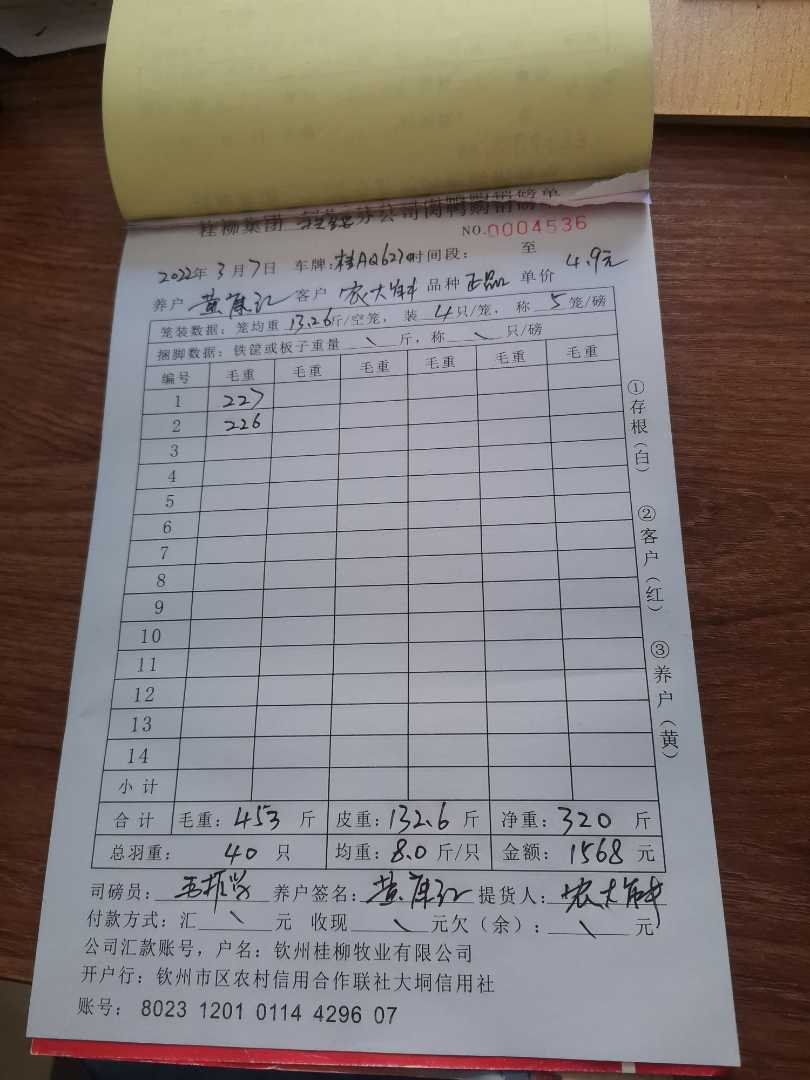 桂柳集团 分公司肉鸭购销磅单
NO.0004536
2022年3月7日 车牌:桂AQ627 时间段: 至
养户 黄廉江 客户 农大鲜 品种 正品 单价 4.9元
笼装数据: 笼均重 13.26斤/空笼, 装 4只/笼, 称 5笼/磅
捆脚数据: 铁筐或板子重量 \ 斤, 称 \ 只/磅
编号 毛重 毛重 毛重 毛重 毛重 毛重
1 227
2 226
3
4
5
6
7
8
9
10
11
12
13
14
小计
合计 毛重: 453 斤 皮重: 132.6 斤 净重: 320 斤
总羽重: 40 只 均重: 8.0 斤/只 金额: 1568 元
司磅员: 养户签名: 黄廉江 提货人: 农大鲜
付款方式: 汇 \ 元 收现 \ 元欠(余): \ 元
公司汇款账号, 户名: 钦州桂柳牧业有限公司
开户行: 钦州市区农村信用合作联社大垌信用社
账号: 8023 1201 0114 4296 07
①存根(白) ②客户(红) ③养户(黄)